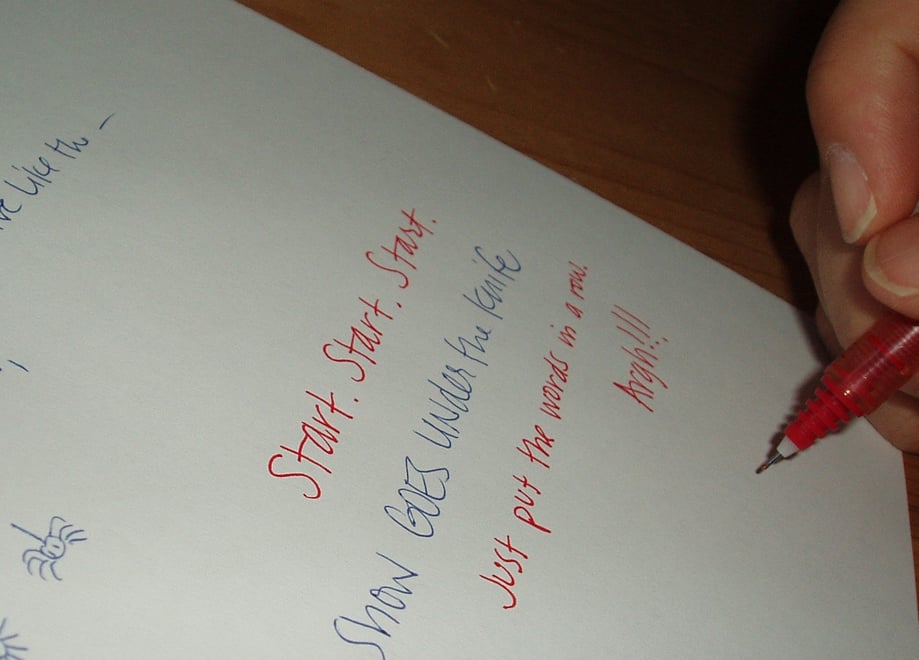 like the –
Start. Start. Start.
Show GOES UNDER the knife
Just put the words in a row.
Argh!!!